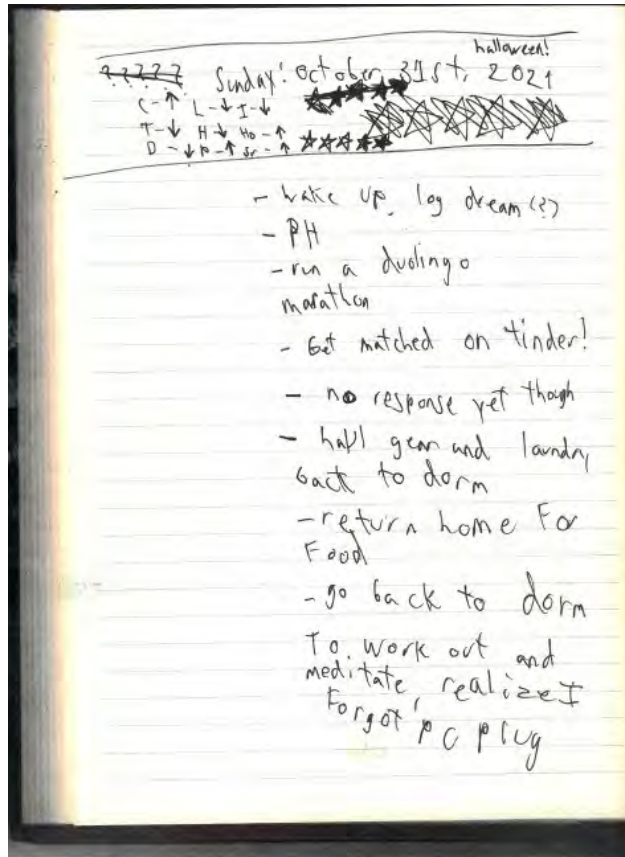 halloween!
????? Sunday: October 31st, 2021
C-↑ L-↓ I-↓
T-↓ H-↓ Ho-↑
D-↓ P-↑ Sr-↑
- wake up, log dream (?)
- PH
- run a duolingo
marathon
- Get matched on tinder!
- no response yet though
- haul gear and laundry
back to dorm
- return home For
Food
- go back to dorm
To work out and
meditate, realize I
Forgot PC plug